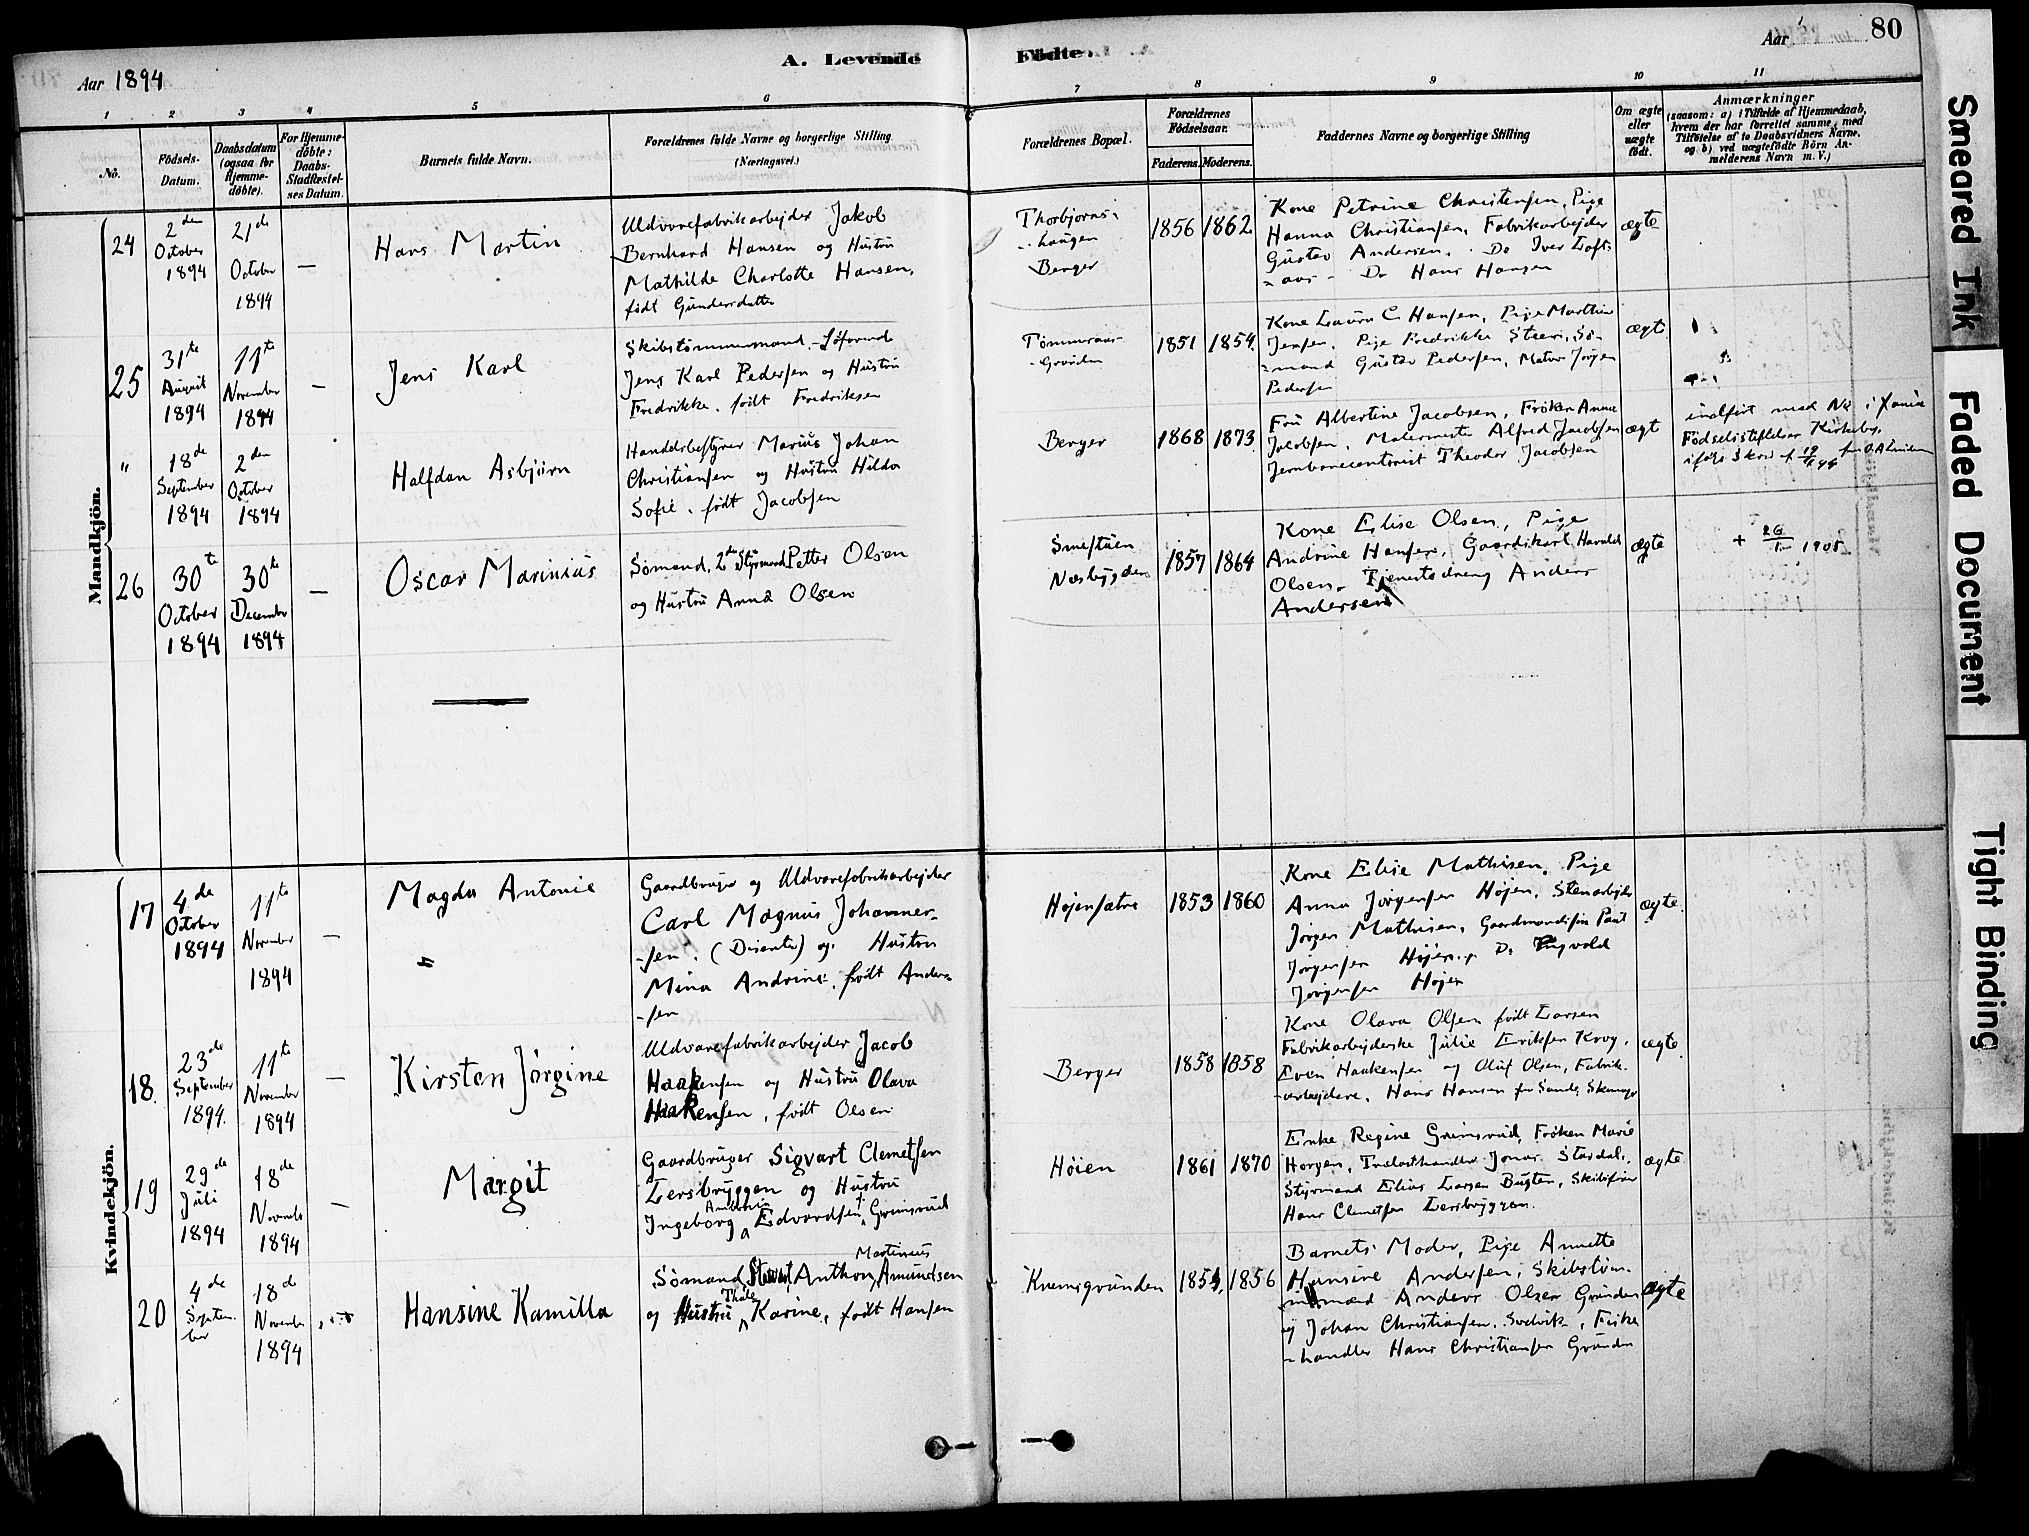 Aar 1894
A. Levende Fødte.
Aar
80
1 2 3 4 5 6 7 8 9 10 11
No.
Fødsels-Datum.
Daabsdatum (ogsaa for Hjemmedøbte).
For Hjemmedøbte: Daabs-Stadfæstelses Datum.
Barnets fulde Navn.
Forældrenes fulde Navne og borgerlige Stilling
(Næringsvei.)
Forældrenes Bopæl.
Forældrenes Fødselsaar.
Faderens. Moderens.
Faddernes Navne og borgerlige Stilling
Om ægte eller uægte født.
Anmærkninger
(saasom: a) i Tilfælde af Hjemmedaab,
hvem der har forrettet samme, med
Tilføielse af to Daabsvidners Navne,
og b) ved uægtefødte Börn An-
melderens Navn m. V.)
Mandkjön.
24
2den October 1894
21de October 1894
—
Hans Martin
Uldvarefabrikarbejder Jakob
Bernhard Hansen og Hustru
Mathilde Charlotte Hansen,
født Gundersdatter
Thorbjørns-
-haugen
Berger
1856 1862
Kone Petrine Christensen, Pige
Hanna Christiansen, Fabrikarbejder
Gustav Andersen. Do Iver Lofts-
-aas - Do Hans Hansen
ægte
25
31te August 1894
11te November 1894
—
Jens Karl
Skibstømmermand
Jens Karl Pedersen og Hustru
Fredrikke, født Fredriksen
1851 1854
Kone Laura C. Hansen, Pige Marthin
Jensen, Pige Fredrikke Steen, Sø-
-mand Gustav Pedersen, Jørgen
Pedersen
ægte
"
18de September 1894
2den October 1894
Halfdan Asbjørn
Handelsbestyrer Marius Johan
Christiansen og Hustru Hilda
Sofie, født Jacobsen
Berger
1868 1873
Fru Albertine Jacobsen, Frøken Anna
Jacobsen, Malermester Alfred Jacobsen
Theodor Jacobsen
ægte
indført med No i
Kirkebog,
26
30te October 1894
30te December 1894
—
Oscar Marinius
Sømand, 2den Styrmand Petter Olsen
og Hustru Anna Olsen
Smestuen
Nesbygden
1857 1864
Kone Elise Olsen, Pige
Andrine Hansen, Gaardskarl Harald
Olsen, Tjenestedreng Anders
Andersen
ægte
+ 26/ 1905
Kvindekjön.
17
4de October 1894
11te November 1894
—
Magda Antonie
Gaardbruger og Uldvarefabrikarbejder
Carl Magnus Johannes-
-sen, (Dissenter) og Hustru
Mina Andrine, født Ander-
-sen
Højensætre
1853 1860
Kone Elise Mathisen, Pige
Anna Jørgensen Højen, Stenarbejder
Jørgen Mathisen, Gaardmandssøn Paul
Jørgensen Højen, Do Ingvald
Jørgensen Højen
ægte
18.
23de September 1894.
11te November 1894
—
Kirsten Jørgine
Uldvarefabrikarbejder Jacob
Haakensen og Hustru Olava
Haakensen, født Olsen
Berger
1858 1858
Kone Olava Olsen født Larsen
Fabrikarbejderske Julie Eriksen Krog,
Even Haakensen og Oluf Olsen, Fabrik-
-arbejdere, Hans Hansen fra Sande
ægte
19
29de Juli 1894
18de November 1894
—
Margit
Gaardbruger Sigvart Clemetsen
Lersbryggen og Hustru
Ingeborg Edvardsen, Grimsrud
Høien
1861 1870
Enke Regine Grimsrud, Frøken Marie
Horgen, Trelasthandler Jonas Stardal,
Styrmand Elias Larsen Bugten,
Hans Clemetsen Lersbryggen.
ægte
20
4de September
18de November 1894
Hansine Kamilla
Sømand, Stuert Anthon Martinius Amundsen
og Hustru Thale Karine, født Hansen
1854 1856
Barnets Moder, Pige Annette
Hansine Andersen, Skibstøm-
-mermand Anders Olsen Grunden
og Johan Christiansen, Svelvik, Fiske
-handler Hans Christiansen Grunden
ægte
Smeared Ink
Faded Document
Tight Binding